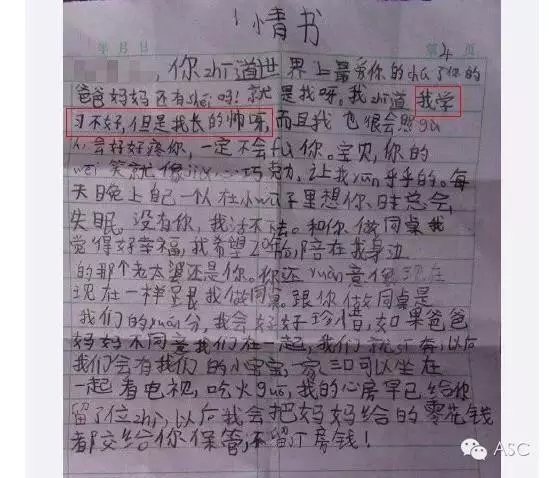 情书
年 月 日 第4页
，你zhī道世界上最爱你的cha了你的
爸爸妈妈还有shéi吗！就是我呀。我zhī道我学
习不好，但是我长的帅呀，而且我也很会照gù
会好好疼你，一定不会fù你。宝贝，你的
wēi笑就像巧克力，让我yūn乎乎的。每
天晚上自己一个人在小wū子里想你、时总会
失眠。没有你，我活不下去。和你做同桌我
觉得好幸福，我希望20年后陪在我身边
的那个老太婆还是你。你还yuàn意像现在
现在一样跟我做同桌。跟你做同桌是
我们的yuán分，我会好好珍惜，如果爸爸
妈妈不同意我们在一起，我们就，以后
我们会有我们的小宝宝，一家三口可以坐在
一起看电视，吃火guō，我的心房早已给你
留了位zhì，以后我会把妈妈给的零花钱
都交给你保管，不留房钱！
ASC